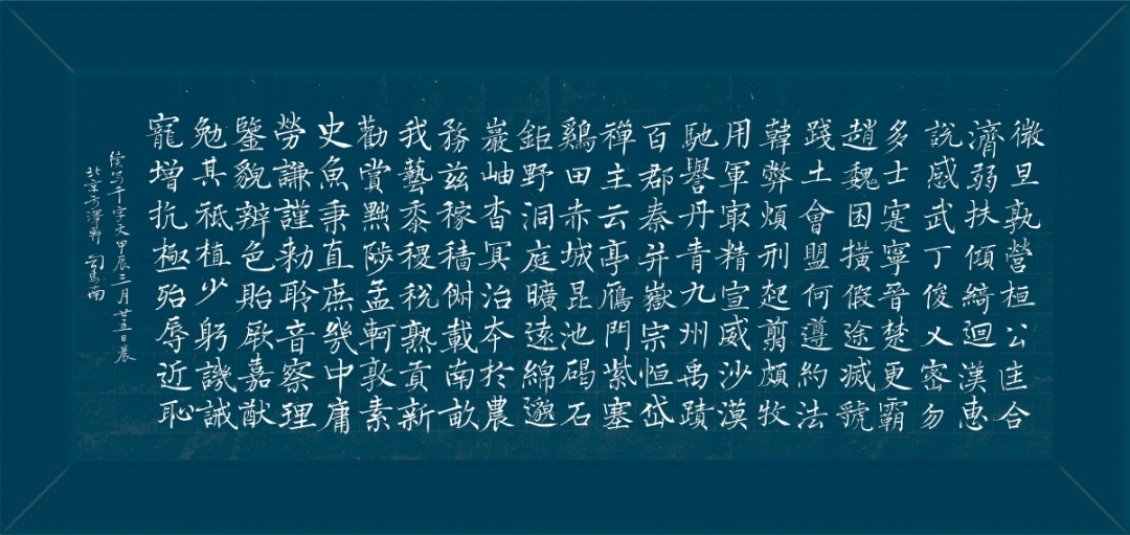 微旦孰營桓公匡合
濟弱扶傾綺迴漢惠
説感武丁俊乂密勿
多士寔寧晉楚更霸
趙魏困橫假途滅虢
踐土會盟何遵約法
韓弊煩刑起翦頗牧
用軍冣精宣威沙漠
馳譽丹青九州禹蹟
百郡秦并嶽宗恒岱
禪主云亭鴈門紫塞
鷄田赤城昆池碣石
鉅野洞庭曠遠綿邈
巖岫杳冥治本於農
務茲稼穡俶載南畝
我藝黍稷稅熟貢新
勸賞黜陟孟軻敦素
史魚秉直庶幾中庸
勞謙謹勑聆音察理
鑒貌辨色貽厥嘉猷
勉其祗植省躬譏誡
寵增抗極殆辱近恥
續寫千字文甲辰三月廿五日晨
北京方澤軒 司馬南